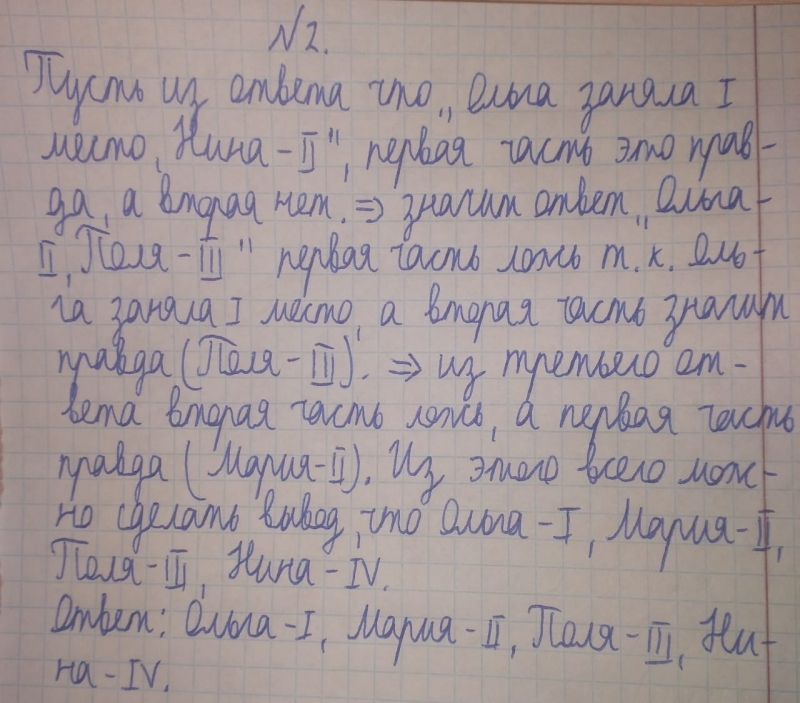 №2.
Пусть из ответа что „Ольга заняла I
место, Нина-II", первая часть это прав-
да, а вторая нет. ⇒ значит ответ „Ольга-
II, Поля-III" первая часть ложь т.к. Оль-
га заняла I место, а вторая часть значит
правда (Поля-III). ⇒ из третьего от-
вета вторая часть ложь, а первая часть
правда (Мария-II). Из этого всего мож-
но сделать вывод, что Ольга-I, Мария-II,
Поля-III, Нина-IV.
Ответ: Ольга-I, Мария-II, Поля-III, Ни-
на-IV.